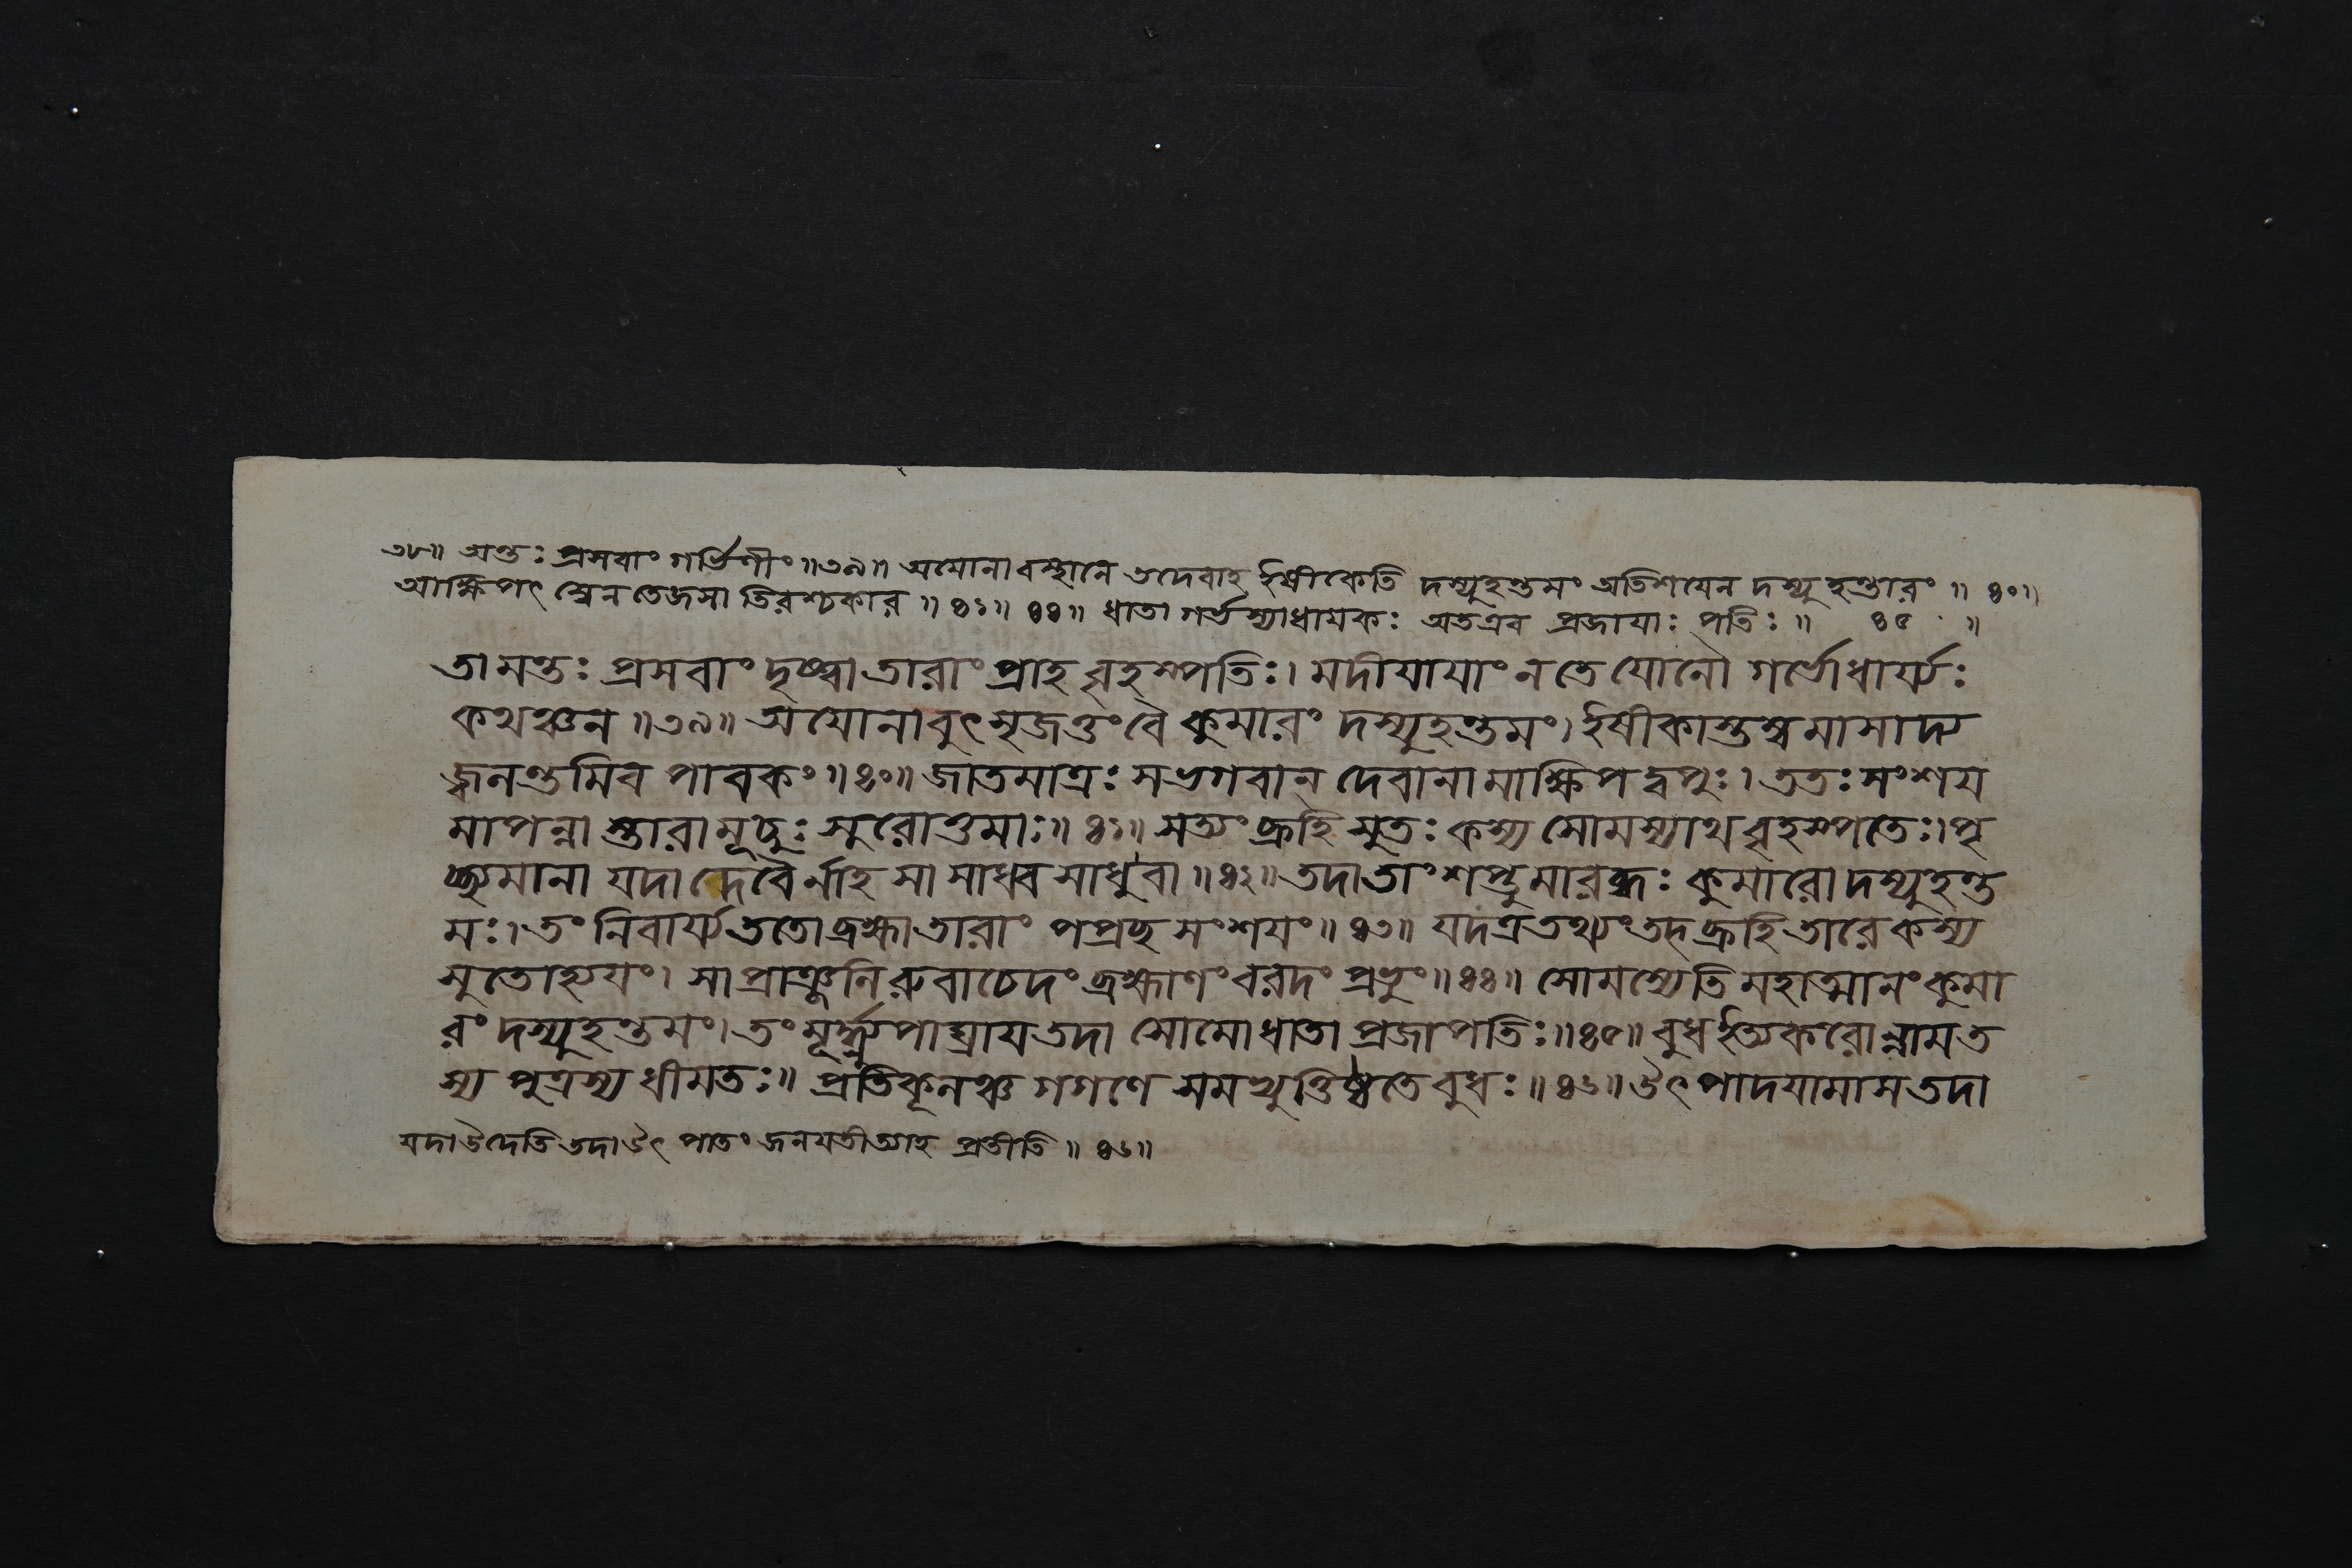 ৩৮॥ অন্তঃ প্রসবাং গর্ভিণীং॥৩৯॥ অযোনাবস্থানে তদেবাহ ইষীকেতি দস্যুহন্তমং অতিশযেন দস্যুহন্তারং॥ ৪০॥
আক্ষিপৎ স্বেন তেজসা তিরশ্চকার॥ ৪১॥ ৪৪॥ ধাতা গর্ভস্যাধাযকঃ অতএব প্রজাযাঃ পতিঃ॥ ৪৫॥
তামন্তঃ প্রসবাং দৃষ্ট্বা তারাং প্রাহ বৃহস্পতিঃ। মদীযাযাং ন তে যোনৌ গর্ভো ধার্য্যঃ
কথঞ্চন॥৩৯॥ অযোনাবুৎসৃজত্তং বৈ কুমারং দস্যুহন্তমং। ইষীকাস্তম্বমাসাদ্য
জ্বলন্তমিব পাবকং॥৪০॥ জাতমাত্রঃ স ভগবান্ দেবানামাক্ষিপদ্বপুঃ। ততঃ সংশয
মাপন্না স্তারামূচুঃ সুরোত্তমাঃ॥ ৪১॥ সত্যং ব্রূহি সুতঃ কস্য সোমস্যাথ বৃহস্পতেঃ। পৃ
চ্ছ্যমানা যদা দেবৈর্নাহ সা সাধ্বসাধু বা॥ ৪২॥ তদা তাং শপ্তুমারব্ধঃ কুমারো দস্যুহন্ত
মঃ। তং নিবার্য্য ততো ব্রহ্মা তারাং পপ্রচ্ছ সংশযং॥ ৪৩॥ যদত্র তথ্যং তদ্ব্রূহি তারে কস্য
সুতোহ্যযং। সা প্রাঞ্জলিরুবাচেদং ব্রহ্মাণং বরদং প্রভুং॥ ৪৪॥ সোমস্যেতি মহাত্মানং কুমা
রং দস্যুহন্তমং। তং মূর্দ্ধ্ন্যুপাঘ্রায তদা সোমো ধাতা প্রজাপতিঃ॥৪৫॥ বুধ ইত্যকরোন্নাম ত
স্য পুত্রস্য ধীমতঃ॥ প্রতিকূলঞ্চ গগণে সমভ্যুত্তিষ্ঠতে বুধঃ॥ ৪৬॥ উৎপাদযামাস তদা
যদা উদেতি তদা উৎপাতং জনযতীত্যাহ প্রতীতি॥ ৪৬॥